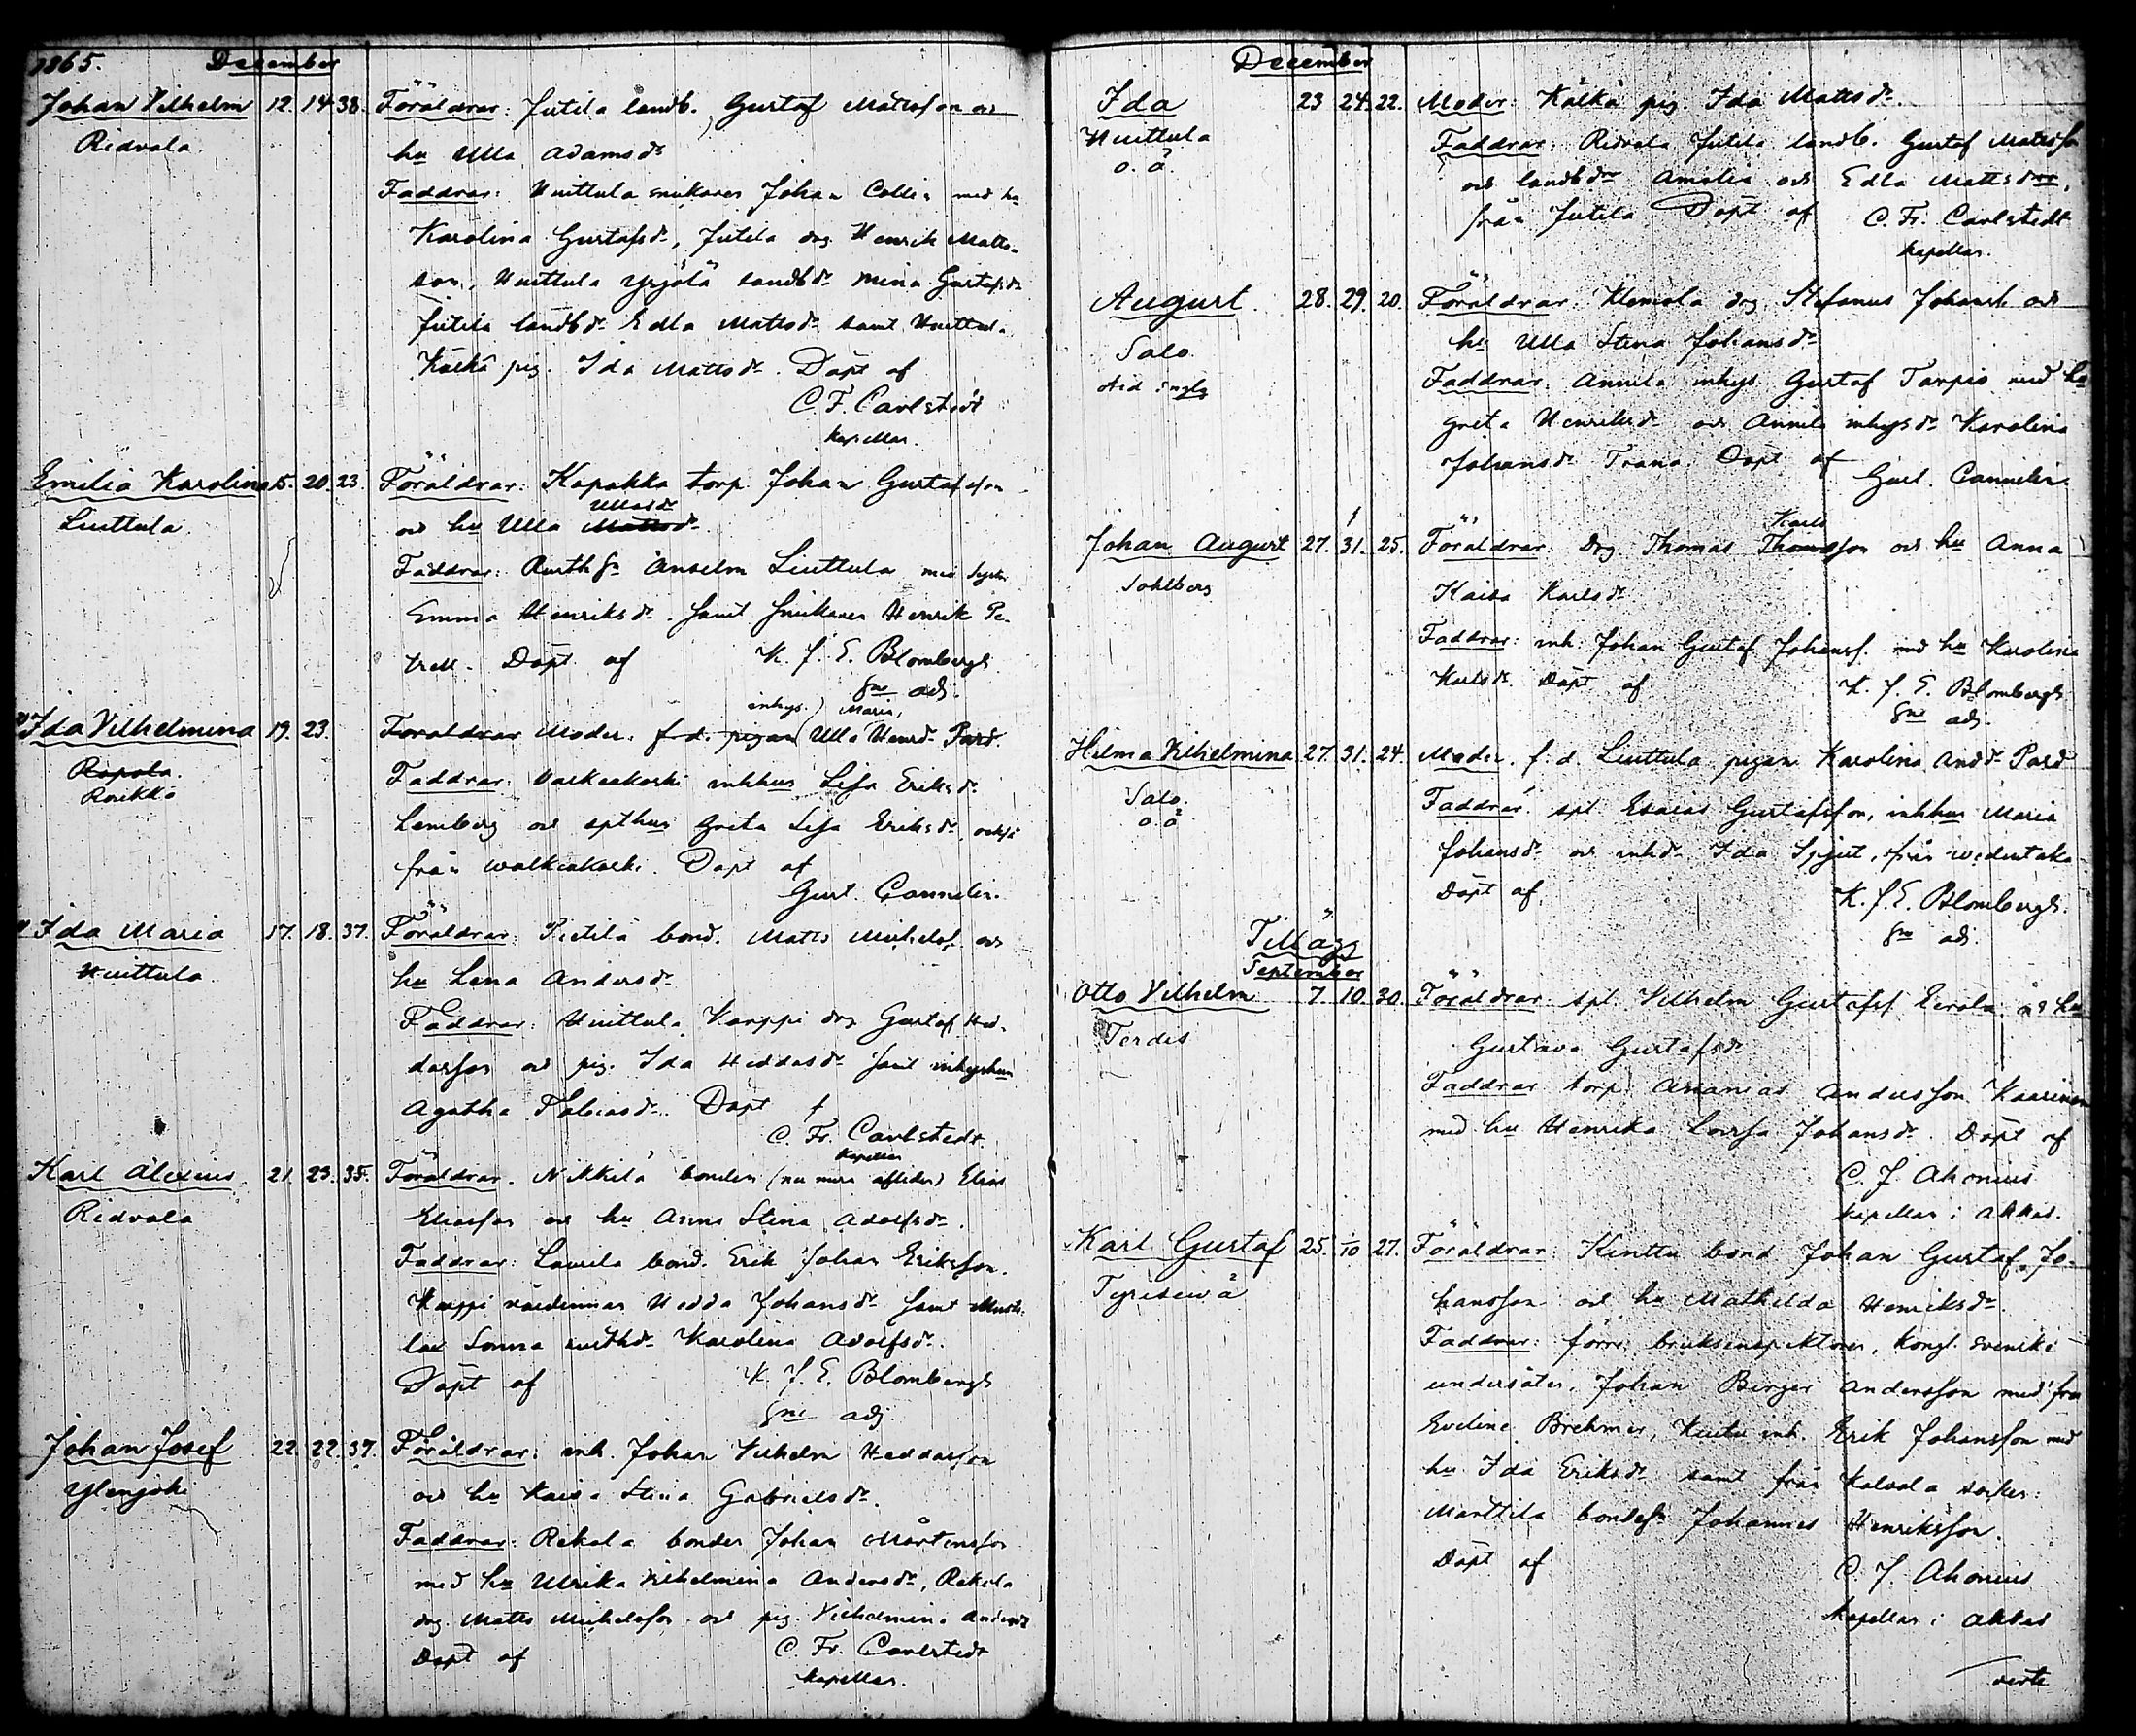 1865. December
Johan Vilhelm 12. 14. 38. Föräldrar: Jutila landb. Gustaf Mattsson och
Ridvala. hu Ulla Adamsdr
Faddrar: Huittula snikaren Johan Collin med hu
Karolina Gustafsdr, Jutila drg Henrik Matts-
son, Huittula Yrjölä landbdr Mina Gustafsdr
Jutila landbdr Edla Mattsdr samt Huittula
Kälkä pig. Ida Mattsdr. Döpt af
C. F. Carlstedt
kapellan.
Emilia Karolina 15. 20. 23. Föräldrar: Kapakka torp. Johan Gustafsson
Liuttula och hu Ulla Mattsdr.
Faddrar: Rusth sn Anselm Liuttula med syster
Emma Henriksdr. samt snikaren Henrik Pe-
trell. Döpt af K. J. E. Blombergh
adj.
Ida Vilhelmina 19. 23. Föräldrar Moder: inhys. f.d. pigan Ulla Maria, Henrdr
Rapola. Faddrar: Valkeakoski inhhus Lisa Eriksdr
Roukko
Lemberg och Greta Lisa Eriksdr också
från Walkiakoski. Döpt af
Gust. Cannelin.
Ida Maria 17. 18. 37. Föräldrar: Pietilä bond. Matts Michelsf. och
Huittula hu Lena Andersdr
Faddrar: Huittula Karppi drg Gustaf Hed-
dasson och pig. Ida Heddasdr samt inhyshus
Agatha Tobiasdr. Döpt af
C. Fr. Carlstedt
kapellan
Karl Alexius 21. 23. 35. Föräldrar. Nikkilä bonden (nu mera afliden) Elias
Ridvala Eliasson och hu Anna Stina Adolfsdr.
Faddrar: Laurila bond. Erik Johan Eriksson.
Karppi värdinnan Hedda Johansdr samt
Karolina Adolfsdr.
Döpt af K. J. E. Blombergh
adj
Johan Josef 22. 22. 37. Föräldrar: inh. Johan Vilhelm Heddasson
Ylenjoki och hu Kaisa Stina Gabrielsdr.
Faddrar: Rekola bonden Johan Mårtensson
med hu Ulrika Vilhelmina Andersdr, Rekola
drg Matts Michelsson och pig. Vilhelmina Andersdr
Döpt af C. Fr. Carlstedt
kapellan.
December
Ida 23 24. 22. Moder: Kälkä pig. Ida Mattsdr.
Huittula Faddrar: Ridvala Jutila landb. Gustaf Mattsson
o. ä. och landbdr Amalia och Edla Mattsdrar,
från Jutila Döpt af C. Fr. Carlstedt
kapellan.
August 28. 29. 20. Föräldrar: Klemola drg Stefanus Johansf. och
Salo. hu Ulla Stina Johansdr
Faddrar: Annila inhys Gustaf Tarpio med hu
Greta Henriksdr och Annila inhysdr Karolina
Johansdr Trana. Döpt af Gust. Cannelin
Johan August 27. 31. 25. Föräldrar: Drg Thomas Karlsson och hu Anna
Sohlberg Kaisa Karlsdr
Faddrar: inh. Johan Gustaf Johansf. med hu Karolina
Karlsdr. Döpt af K. J. E. Blombergh
adj.
Hilma Vilhelmina 27. 31. 24. Moder. f.d. Liuttula pigan Karolina Anddr
Salo. Faddrar: spl. Esaias Gustafsson, inhhus Maria
o. ä.
Johansdr och inhdr Ida Spjut, från Wedentaka
Döpt af K. J. E. Blombergh.
adj.
Tillägg
September
Otto Vilhelm 7. 10. 30. Föräldrar: spl. Vilhelm Gustafsf. Eerola och hu
Terdis Gustava Gustafsdr
Faddrar torp. Ananias Andersson Kaarinen
med hu Henrika Lovisa Johansdr. Döpt af
C. J. Ahonius
kapellan i Akkas.
Karl Gustaf 25. 1/10 27. Föräldrar: Kinttu bond Johan Gustaf Jo-
Tyrisevä hansson och hu Mathilda Henriksdr.
Faddrar: förre bruksinspektoren, kongl. svenske
undersåten, Johan Birger Andersson med fru
Eveline Brehmer, Kinttu inh. Erik Johansson med
hu Ida Eriksdr samt från Kalvola socken:
Marttila bondesn Johannes Henriksson.
Döpt af C. J. Ahonius
kapellan i Akkas
verte